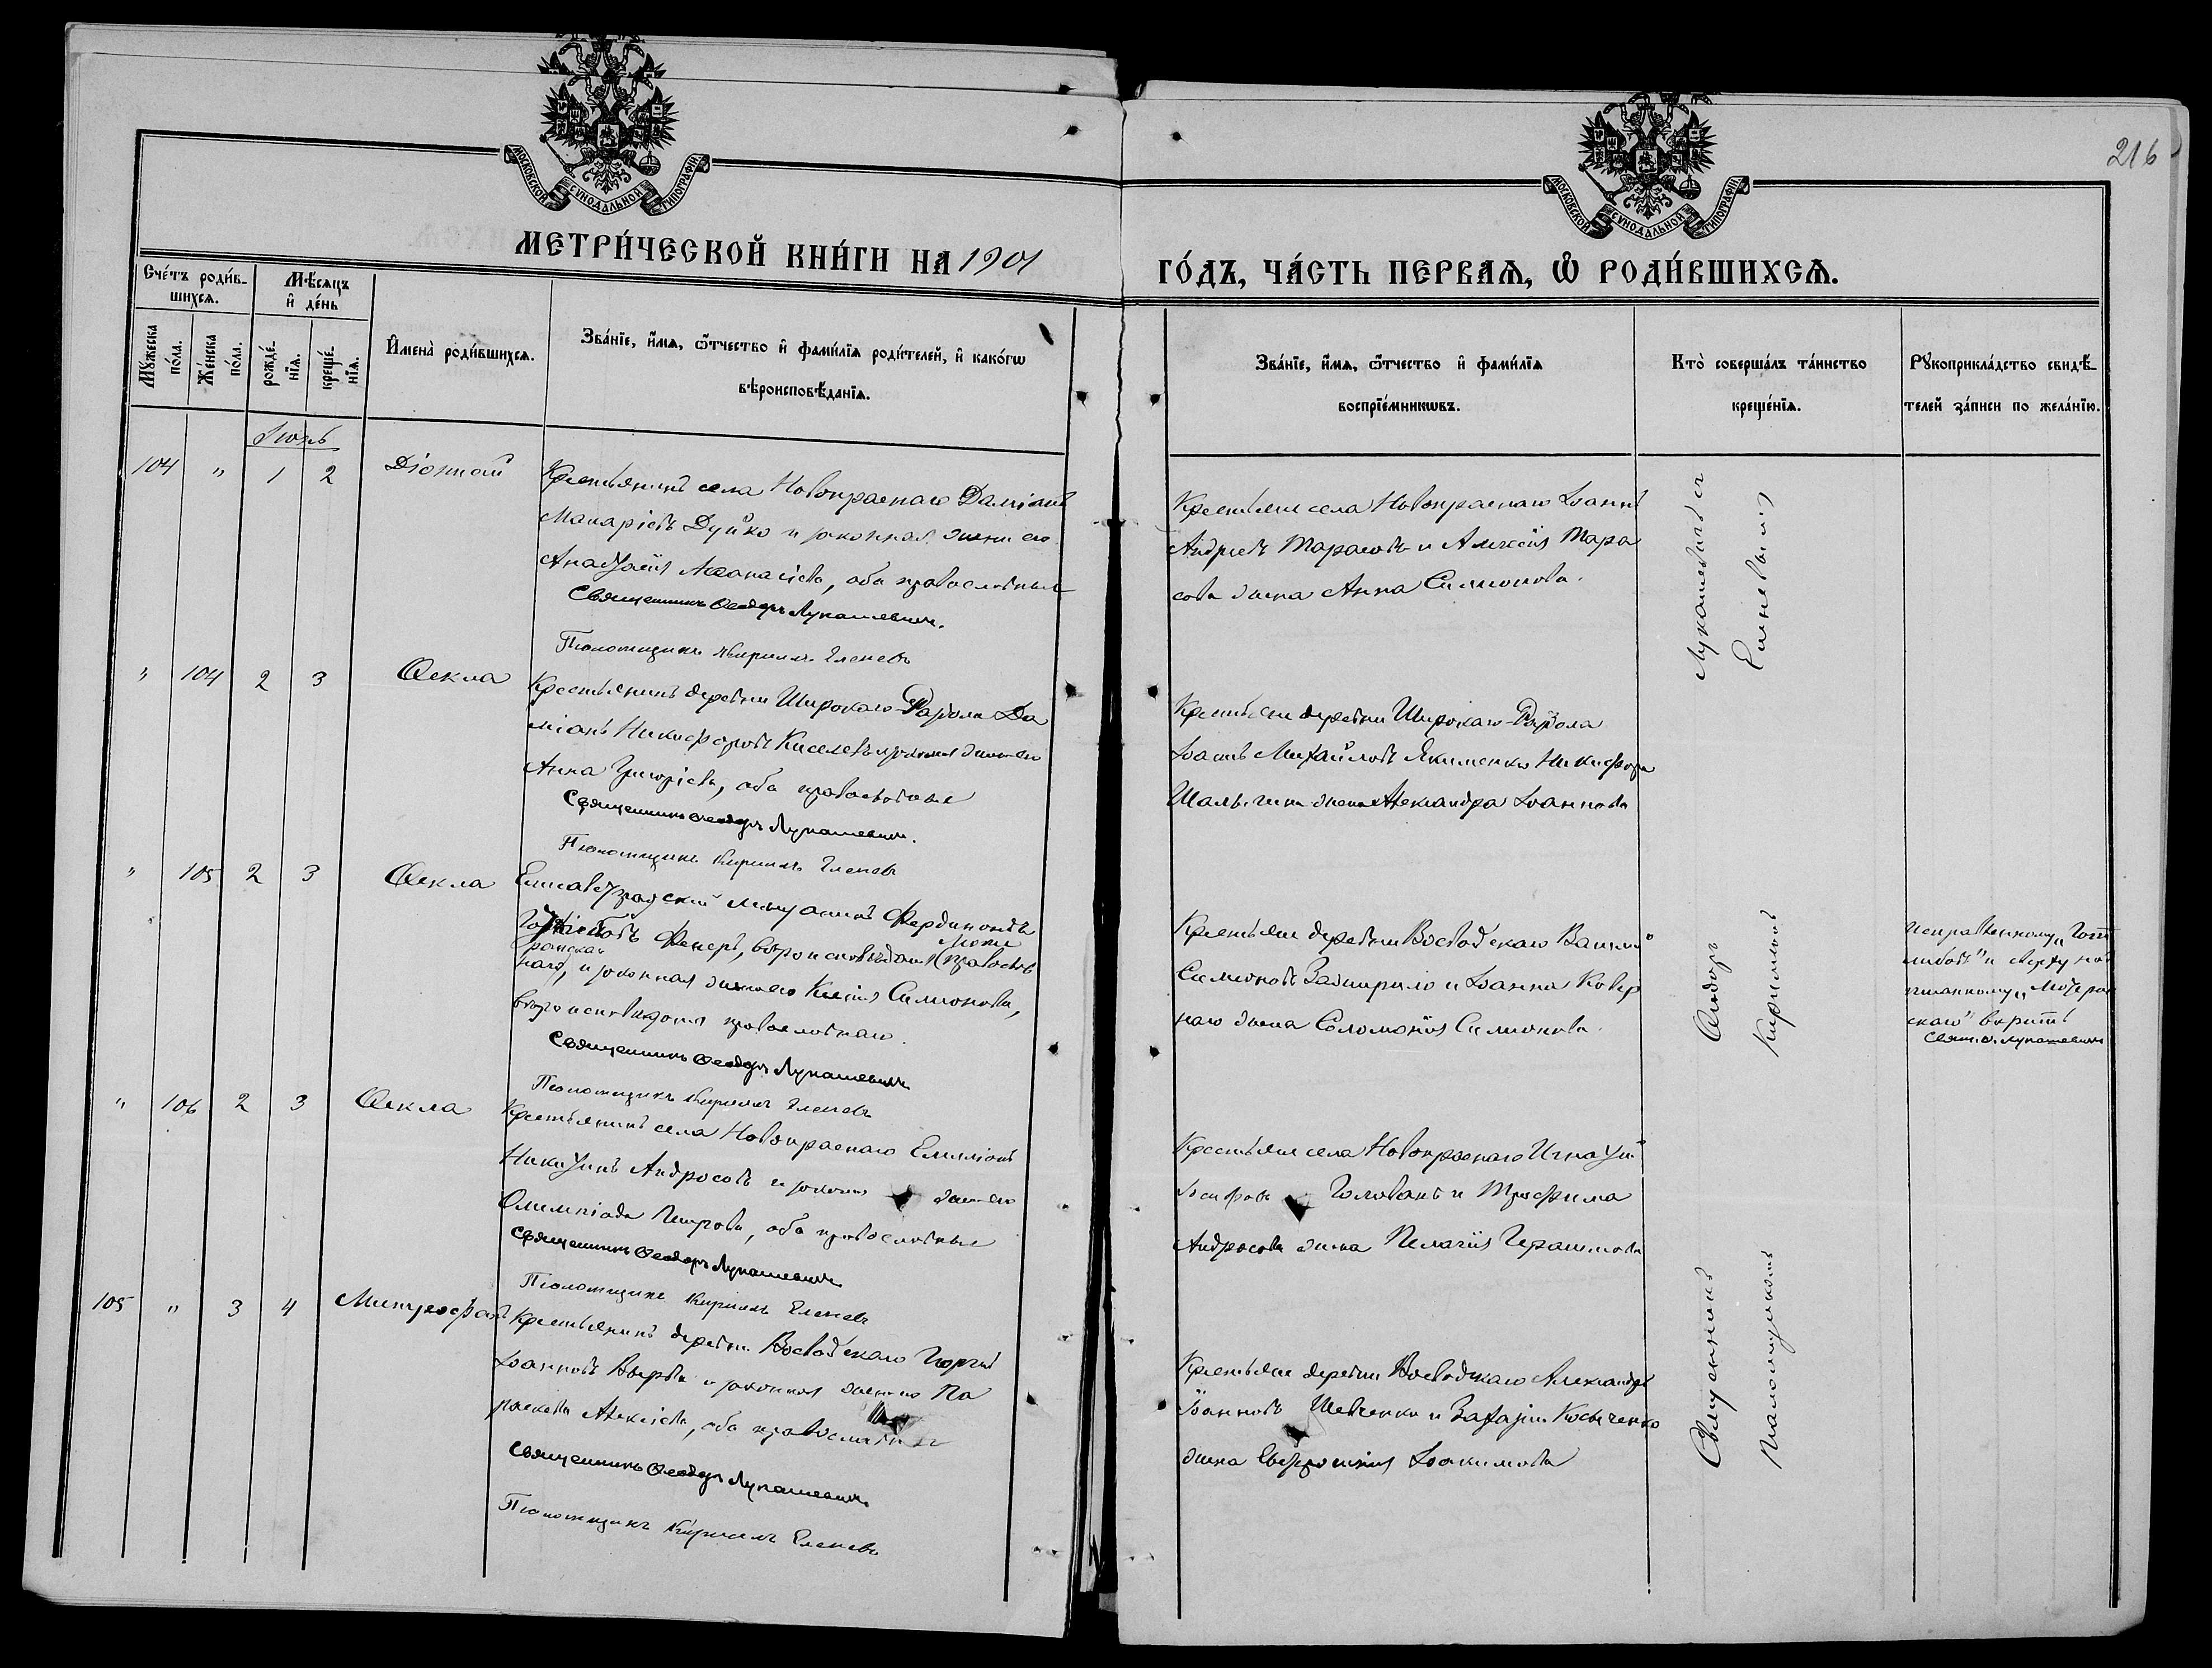 МОСКОВСКОЙ СѴНОДАЛЬНОЙ ТИПОГРАФІИ.
МОСКОВСКОЙ СѴНОДАЛЬНОЙ ТИПОГРАФІИ.
216
МЕТРИ́ЧЕСКОЙ КНИ́ГИ НА 1901
ГО́ДЪ, ЧА́СТЬ ПЕРВАѦ, Ѡ҆ РОДИ́ВШИХСѦ.
Счéтъ роди́в-
шихсѧ.
Мꙋ́жеска по́ла.
Же́нска по́ла.
Мѣ́сѧцъ
и҆ де́нь
рожде́-
нїѧ.
креще́-
нїѧ.
И҆мена̀ роди́вшихсѧ.
Зва́нїе, и҆́мѧ, ѻ҆́тчество и҆ фами́лїѧ роди́телей, и҆ како́гѡ
вѣроисповѣ́данїѧ.
Зва́нїе, и҆́мѧ, ѻ҆́тчество и҆ фами́лїѧ
воспрїе́мникѡвъ.
Кто̀ соверша́лъ та́инство
креще́нїѧ.
Рꙋкоприкла́дство свидѣ́-
телей за́писи по жела́нїю.
Іюнь
104 " 1 2 Діонисій
Крестьянинъ села Новокраснаго Даміанъ
Макаріевъ Дуйко и законная жена его
Анастасія Аѳанасіева, оба православные
Священникъ Ѳеодоръ Лукашевичъ.
Псаломщикъ Кириллъ Еленевъ
Крестьяне села Новокраснаго Іоаннъ
Андреевъ Тарасовъ и Алексія Тара
сова жена Анна Симионова.
" 104 2 3 Ѳекла
Крестьянинъ деревни Широкаго-Раздола Да
міанъ Никифоровъ Киселевъ и законная жена его
Анна Григоріева, оба православные
Священникъ Ѳеодоръ Лукашевичъ.
Псаломщикъ Кириллъ Еленевъ
Крестьяне деревни Широкаго-Раздола
Іоаннъ Михайловъ Якименко и Никифора
жена Александра Іоаннова
" 105 2 3 Ѳекла
Елисаветградскій мѣщанинъ Фердинандъ
вѣроисповѣданія (православ
наго), и законная жена его Ксенія Симионова,
вѣроисповѣданія православнаго.
Священникъ Ѳеодоръ Лукашевичъ
Псаломщикъ Кириллъ Еленевъ
Крестьяне деревни Воеводскаго Василій
Симионовъ и Іоанна
жена Соломонія Симионова.
исправленному „Готт
либовъ" и сверху на
писанному „Лютеран
скаго" вѣрить
Свящ. Ѳ. Лукашевичъ
" 106 2 3 Ѳекла
Крестьянинъ села Новокраснаго Емиліанъ
Никитинъ Андросовъ и законная жена его
Олимпіада Петрова, оба православные
Священникъ Ѳеодоръ Лукашевичъ
Псаломщикъ Кириллъ Еленевъ
Крестьяне села Новокраснаго Игнатій
Іосифовъ Голованъ и Трофима
Андросова жена Пелагія Герасимова
105 " 3 4 Митрофанъ
Крестьянинъ деревни Воеводскаго Георгій
Іоанновъ Верба и законная жена его Па
раскева Алексіева, оба православные
Священникъ Ѳеодоръ Лукашевичъ.
Псаломщикъ Кириллъ Еленевъ
Крестьяне деревни Воеводскаго Александръ
Іоанновъ Шевченко и Захаріи
жена Евфросинія Іоакимова
Священникъ Ѳеодоръ Лукашевичъ съ
Псаломщикомъ Кирилломъ Еленевымъ